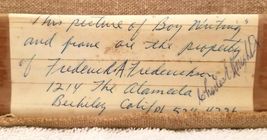 This picture of "Boy Writing"
and frame are the property
of Frederick A Frederickson
1214 The Alameda
Berkeley Calif